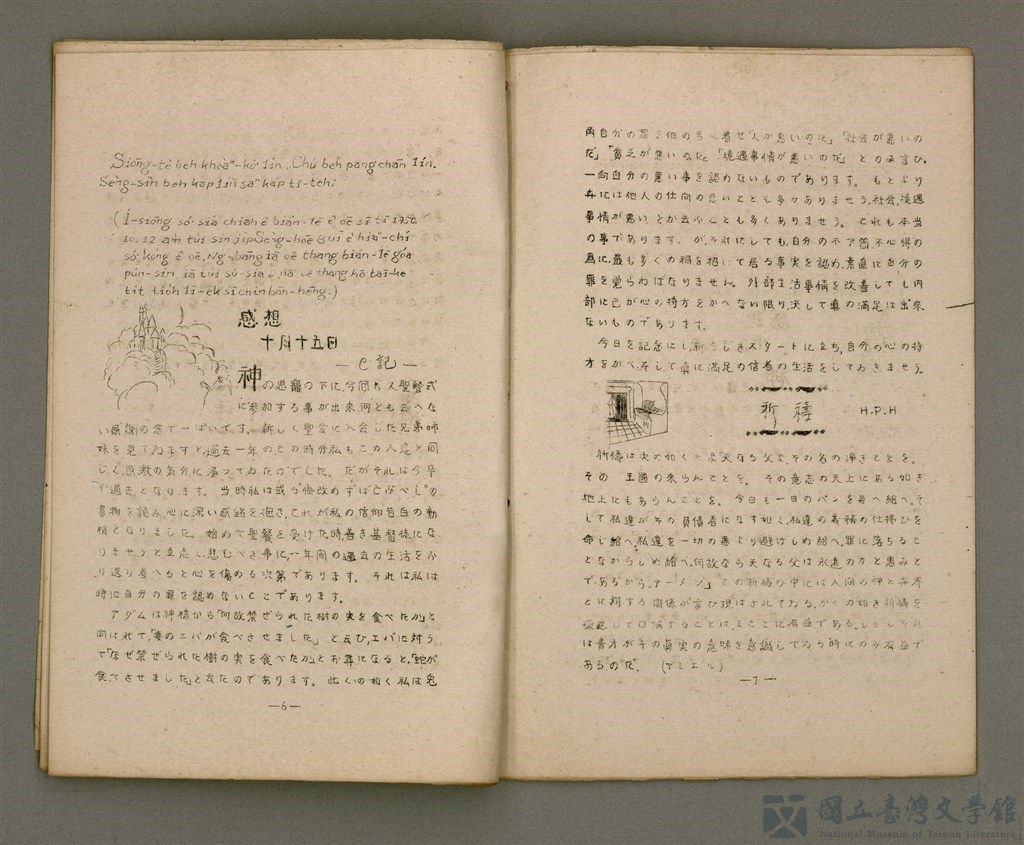 Siōng-tè beh khòaⁿ-kò͘ lín. Chú beh pang-chān lín.
Sèng-sîn beh kap lín saⁿ-kap tī-teh.
(Í-siōng só͘ siá chiah ê bián-lē ê oē sī tī 1956
10.12 am tùi sin ji̍p Sèng-hoē ê hiaⁿ-chí
só͘ kóng ê oē, Ǹg-bāng iā oē thang bián-lē góa
pún-sin, iā tùi só͘-siá ê oē thang hō͘ ta̍i-ke
tit tio̍h lī-ek sī chin bān-hēng.)
感想
十月十五日
—C記—
神の恩寵の下に、今回も又聖餐式
に参加する事が出来、何とも云へな
い感謝の念で一ぱいです。新しく聖会に入会した兄弟姉
妹を見てゐますと、過去一年のこの時分私もこの人達と同
じく、感激の気分に浸ってゐたのでした。だがそれは今早
や過去となります。当時私は或る「悔改めずば亡ぶべし」の
書物を読み、心に深い感銘を抱き、これが私の信仰告白の動
機となりました。始めて聖餐を受けた時善き基督徒にな
りませうと立志し、悲むべき事に、一年間の過去の生活をふ
り返り考へると心を傷める次第であります。それは私は
時に自分の罪を認めないことであります。
アダムは神様から「何故禁ぜられた樹の実を食べたか」と
問はれて、「妻のエバが食べさせました」と云ひ、エバに対う
て「なぜ禁ぜられた樹の実を食べたか」とお尋になると、「蛇が
食べさせました」と云たのであります。此くの如く私は兎
—6—
角自分の罪を他の為に着せ「人が悪いのだ」「社会が悪いの
だ」「貧乏が悪いのだ」「境遇事情が悪いのだ」との み言ひ、
一向自分の悪い事を認めないものであります。もとより
尤には他人の仕向の悪いことも多々ありませう、社会、境遇
事情が悪いとか云ふことも多くありませう。これも本当
の事であります。が、それにしても、自分の不了簡、不心得の
為に、最も多くの禍を招いて居る事実を認め、素直に自分の
罪を覚らねばなりません。外部生活事情を改善しても内
部に己が心の持方をかへない限り、決して真の満足は出来
ないものであります。
今日を記念にし、新らしきスタートに立ち、自分の心の持
方をかへ、そして真に満足の信者の生活をしておきませう。
祈祷 H.P.H
祈祷は次の如く 天なる父よ、その名の淨きことを。
その 王國の来らんことを。その意志の天上にある如き
地上にもあらんことを。今日も一日のパンを与へ給へ、そ
して私達がその負債者になす如く、私達の義務の仕拂ひを
命じ給へ、私達を一切の悪より避けしめ給へ、罪に落ちるこ
となからしめ給へ、何故なら天なる父は永遠の力と惠みと
であるから。アーメン」この祈祷の中には人間の神と世界
とに対する関係が言ひ現はされてゐる。かくの如き祈祷を
して口唱することは、まことに有益である。しかしそれ
は貴方がその真実の意味を意識してゐる時にのみ有益で
あるのだ。(アミエル)
—7—
國立臺灣文學館
National Museum of Taiwan Literature